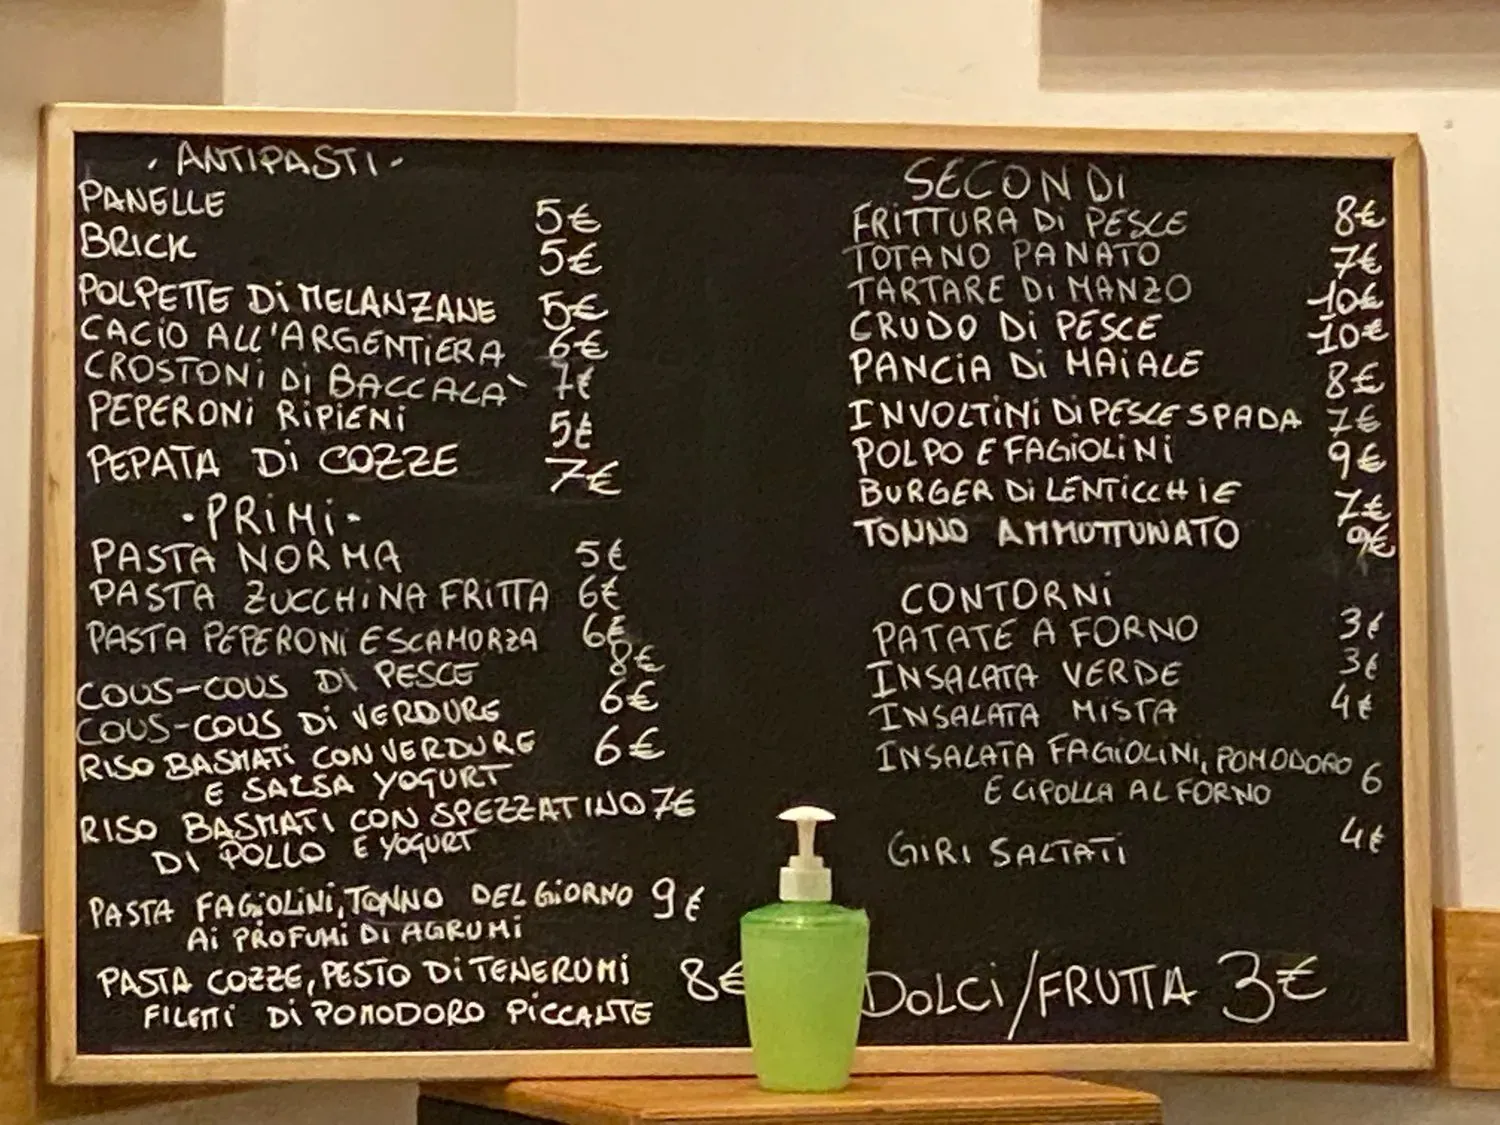 . ANTIPASTI .
PANELLE 5€
BRICK 5€
POLPETTE Di MELANZANE 5€
CACIO ALL'ARGENTIERA 6€
CROSTONi Di BACCALA` 7€
PEPERONi RiPiENi 5€
PEPATA Di COZZE 7€
· PRiMi ·
PASTA NORMA 5€
PASTA ZUCCHiNA FRITTA 6€
PASTA PEPERONi E SCAMORZA 6€
COUS-COUS DI PESCE 8€
COUS-COUS Di VERDURE 6€
RISO BASMATi CON VERDURE 6€
E SALSA YOGURT
RISO BASMATI CON SPEZZATINO 7€
DI POLLO E YOGURT
PASTA FAGiOLiNi, TONNO DEL GiORNO 9€
Ai PROFUMi Di AGRUMi
PASTA COZZE, PESTO Di TENERUMi 8€
FiLETTi Di POMODORO PiCCANTE
SECONDi
FRITTURA Di PESCE 8€
TOTANO PANATO 7€
TARTARE Di MANZO 10€
CRUDO Di PESCE 10€
PANCiA Di MAiALE 8€
INVOLTiNi Di PESCE SPADA 7€
POLPO E FAGiOLiNi 9€
BURGER Di LENTiCCHiE 7€
TONNO AMMUTTUNATO 9€
CONTORNi
PATATE A FORNO 3€
INSALATA VERDE 3€
INSALATA MISTA 4€
INSALATA FAGiOLiNi, POMODORO 6
E CiPOLLA AL FORNO
GIRI SALTATi 4€
DOLCi/FRUTTA 3€